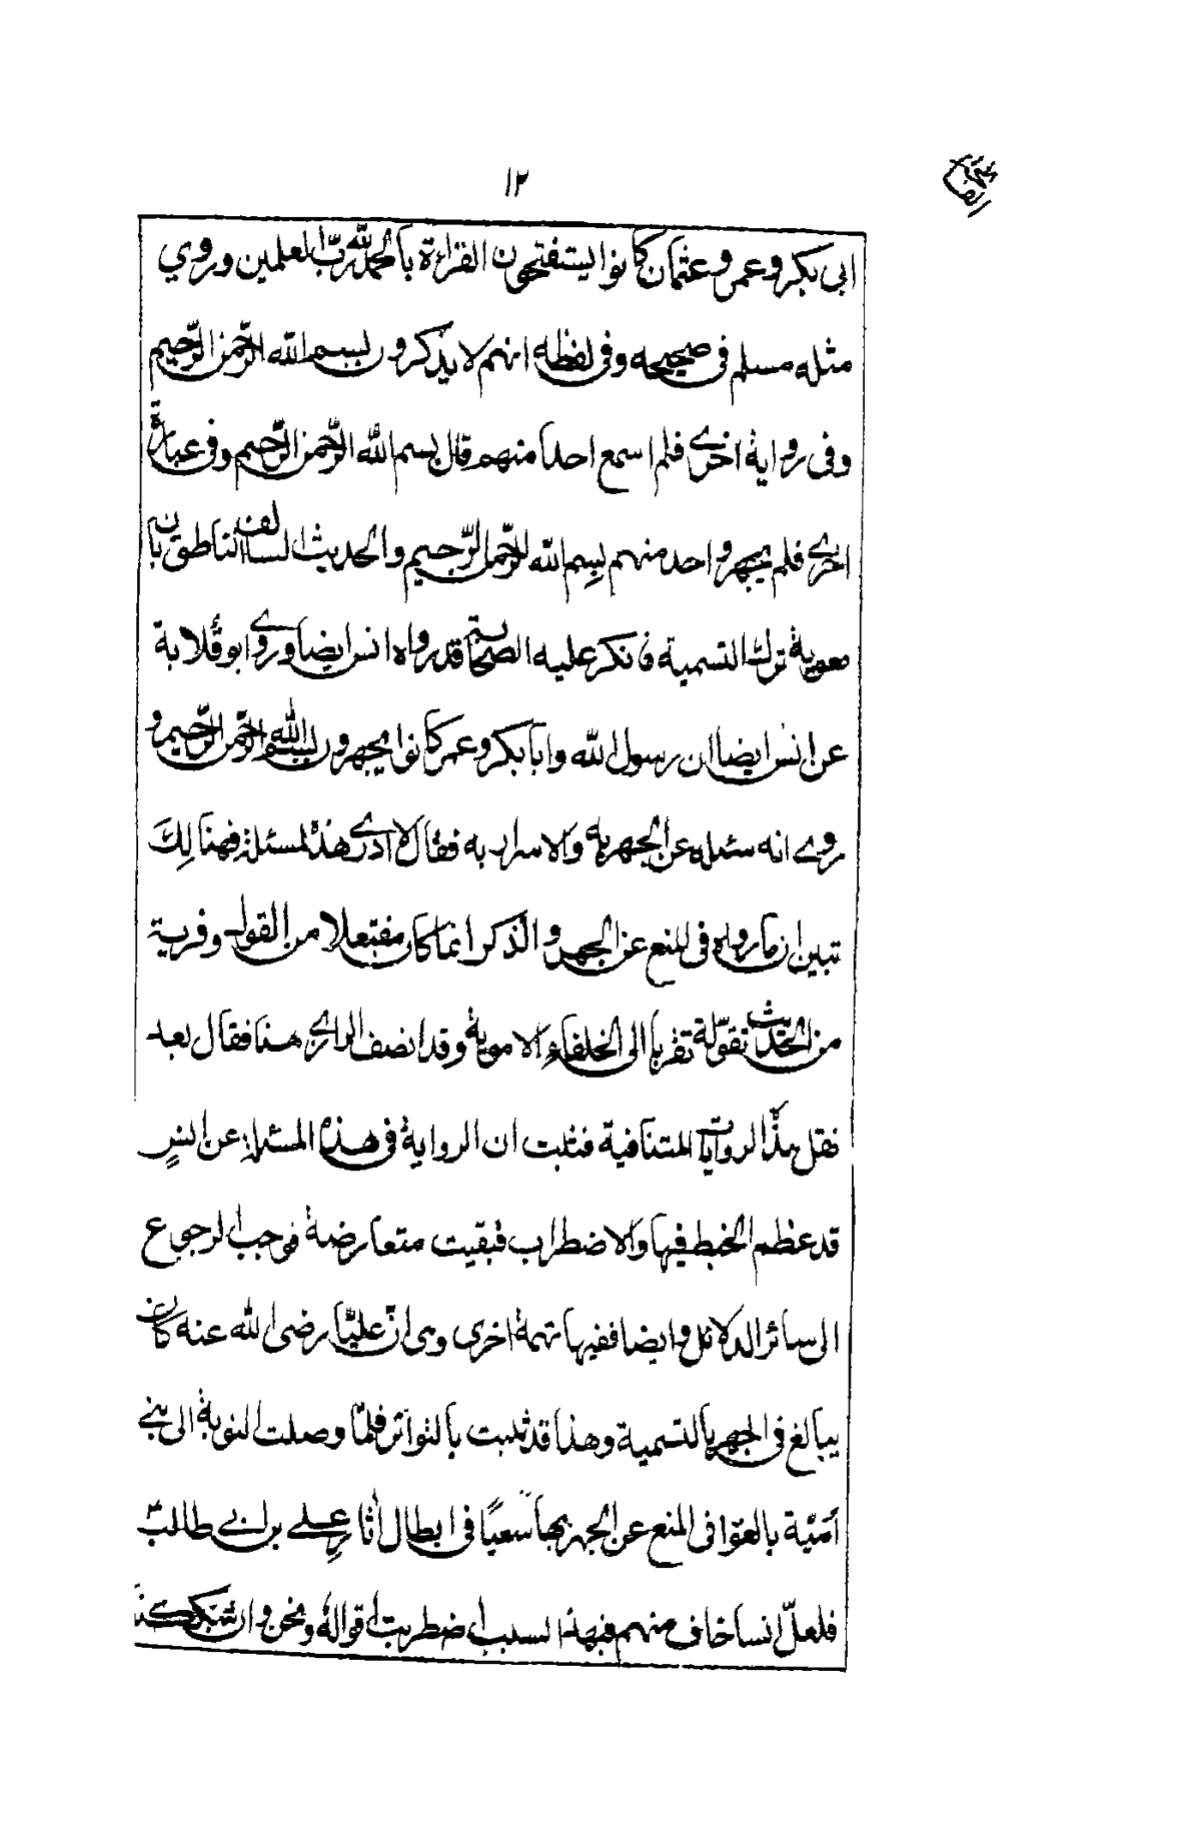 ١٢
ابى بكر وعمر وعثمان كانوا يستفتحون القراءة بالحمد لله رب العلمين وروي
مثله مسلم فى صحيحه وفى لفظه انهم لا يذكرون بسم الله الرحمن الرحيم
وفى رواية اخرى فلم اسمع احدا منهم قال بسم الله الرحمن الرحيم وفى عبارة
اخرى فلم يجهر واحد منهم بسم الله الرحمن الرحيم والحديث السالف الناطق بان
معوية ترك التسمية فانكر عليه الصحابة قد رواه انس ايضا وروى ابو قلابة
عن انس ايضا ان رسول الله وابا بكر وعمر كانوا يجهرون بسم الله الرحمن الرحيم و
روى انه سئله عن الجهر به والاسرار به فقال لا ادرى هذه المسئلة فهنالك
تبين ان ما رواه فى المنع عن الجهر والذكر انما كان مفتعلا من القول وفرية
من الحديث تقوّلة تقربا الى الخلفاء الاموية وقد انصف الرازى هنا فقال بعد
نقل هذه الروايات المتنافية فثبت ان الرواية فى هذه المسئلة عن انس
قد عظم الخبط فيها والاضطراب فبقيت متعارضة فوجب الرجوع
الى سائر الدلائل وايضا ففيها تهمة اخرى وهى ان عليّا رضى الله عنه كان
يبالغ فى الجهر بالتسمية وهذا قد ثبت بالتواتر فلمّا وصلت النوبة الى بنى
أميّة بالغوا فى المنع عن الجهر بها سعيًا فى ابطال آثار على بن ابى طالب
فلعلّ انسا خاف منهم فبهذا السبب اضطربت اقواله ونحن وان شككنا